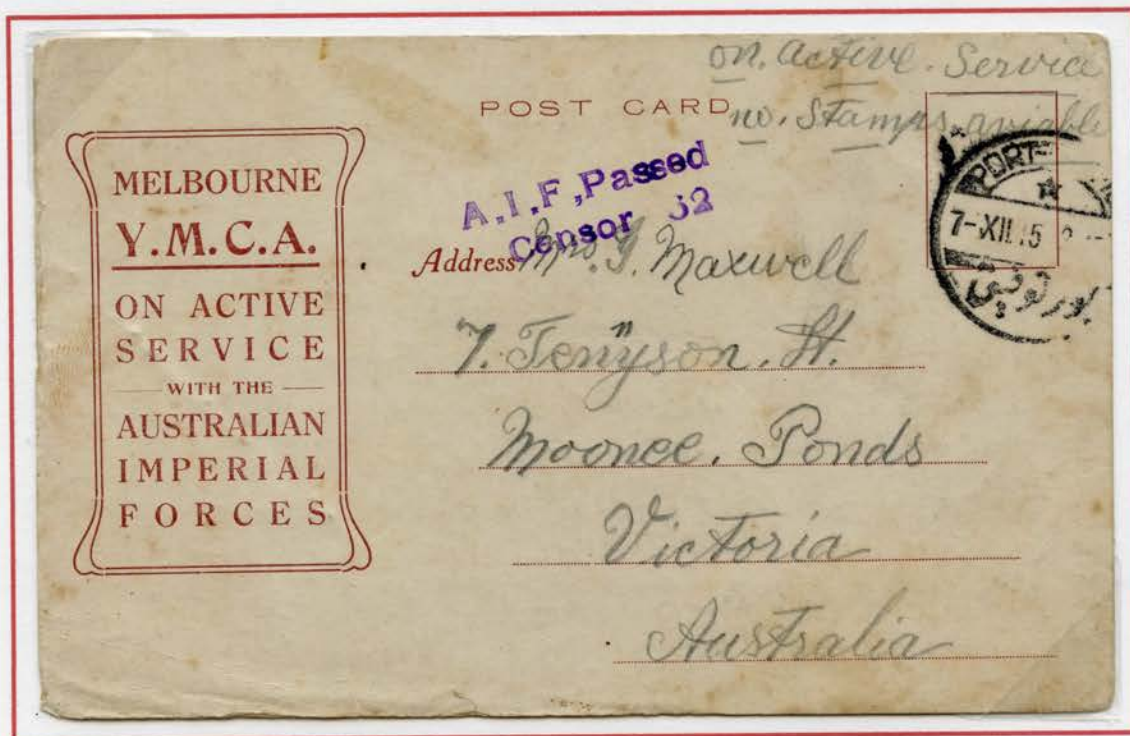 on. active. Service
no. Stamps. aviable
POST CARD
MELBOURNE
Y.M.C.A.
ON ACTIVE
SERVICE
WITH THE
AUSTRALIAN
IMPERIAL
FORCES
A.I.F, Passed
Censor 52
PORT-
7-XII.15
بورتوفيق
Address Mrs. J. Maxwell
7. Tennyson. St.
Moonee. Ponds
Victoria
Australia